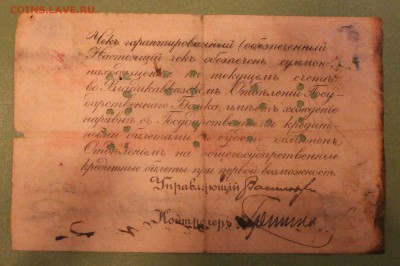 COINS.SU
Чекъ гарантированный (обезпеченный
Настоящій чекъ обезпеченъ суммою,
находящеюся на текущемъ счету
во Владикавказскомъ Отдѣленіи Госу-
дарственнаго Банка, имѣетъ хожденіе
наравнѣ съ Государственными кредит-
ными билетами и будетъ обмѣненъ
Отдѣленіемъ на общегосударственные
кредитные билеты при первой возможности.
Управляющій
Контролеръ